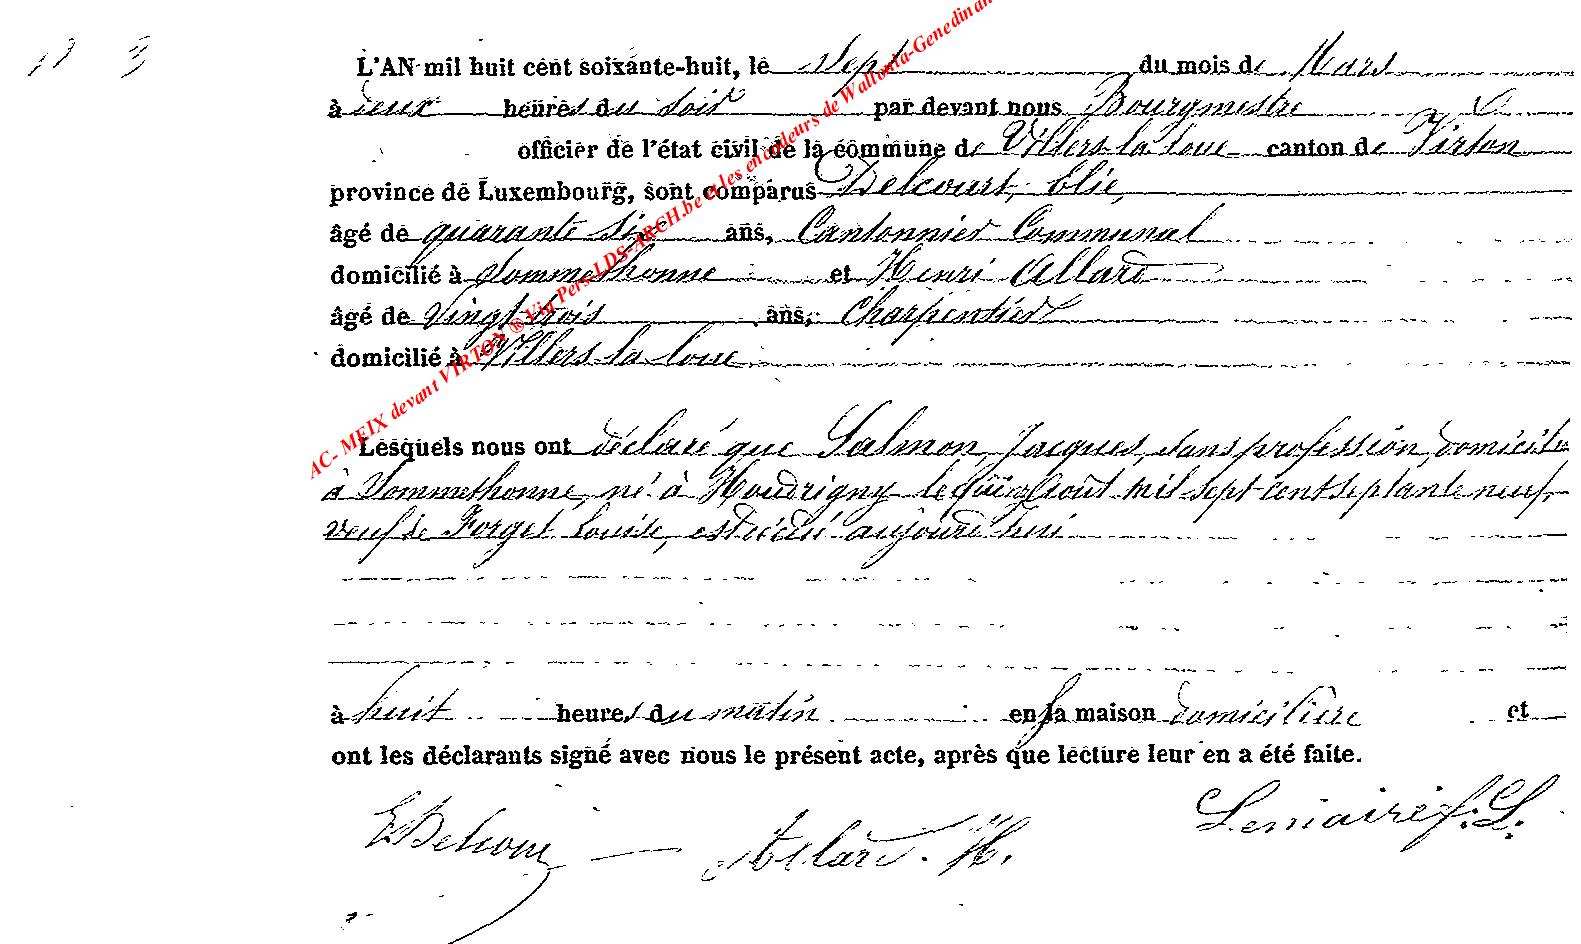 N° 3
L'AN mil huit cent soixante-huit, le sept du mois de Mars
à deux heures du soir par devant nous Bourgmestre
officier de l'état civil de la commune de Villers la loue canton de Virton
province de Luxembourg, sont comparus Delcourt, Elie,
âgé de quarante six ans, Cantonnier Communal
domicilié à Sommethonne et Henri Allard
âgé de Vingt trois ans, Charpentier
domicilié à Villers la loue
Lesquels nous ont déclaré que Salmon, Jacques, sans profession, domicilié
à Sommethonne, né à Houdrigny le quinze août mil sept cent septante neuf,
veuf de Forget Louise, est décédé aujourd'hui
à huit heures du matin en sa maison domiciliere et
ont les déclarants signé avec nous le présent acte, après que lecture leur en a été faite.
E. Delcour Allard. H. Lemaire f. L.
AC- MEIX devant VIRTON ® Via Pers LDS-ARCH.be et les en couleurs de Wallonia-Genedinan